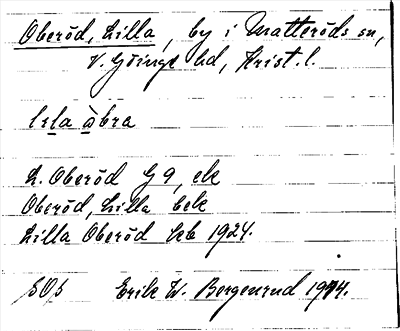 Oberöd, Lilla, by i Matteröds sn,
V. Göinge hd, Krist. l.
lɩla òbra
L. Oberöd G 9, ek
Oberöd, Lilla bek
Lilla Oberöd kb 1924.
SOS Erik W. Bergenrud 1944.